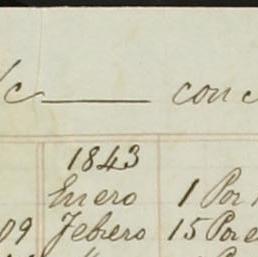 con
1843
Enero 1 Por
09 Febrero 15 Por